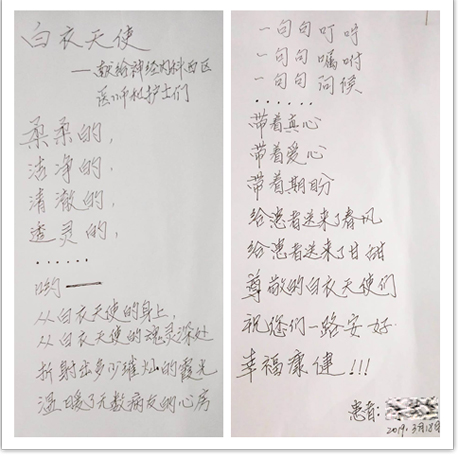 白衣天使
——献给神经内科西区
医师和护士们
柔柔的，
洁净的，
清澈的，
透灵的，
……
哟——
从白衣天使的身上，
从白衣天使的魂灵深处
折射出多少璀灿的霞光
温暖了无数病友的心房
一句句叮咛
一句句嘱咐
一句句问候
……
带着真心
带着爱心
带着期盼
给患者送来了春风
给患者送来了甘甜
尊敬的白衣天使们
祝您们一路安好
幸福康健!!!
患者:
2019.3月18日